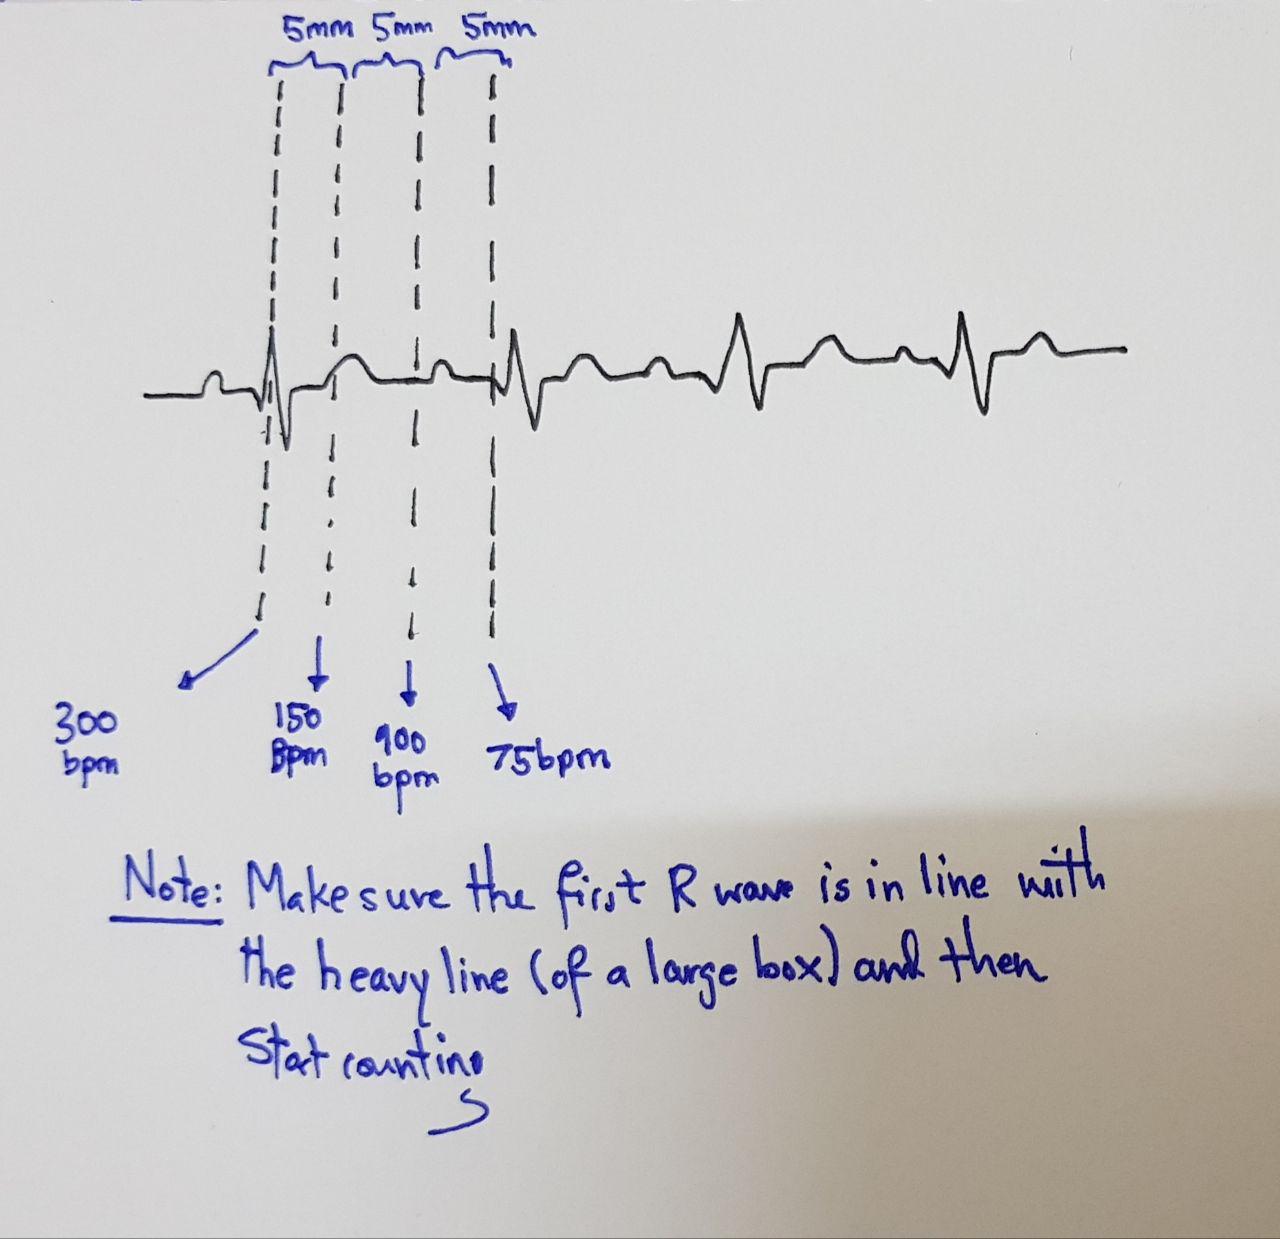 5mm 5mm 5mm
300 bpm
150 Bpm
900 bpm
75bpm
Note: Make sure the first R wave is in line with
the heavy line (of a large box) and then
Start counting